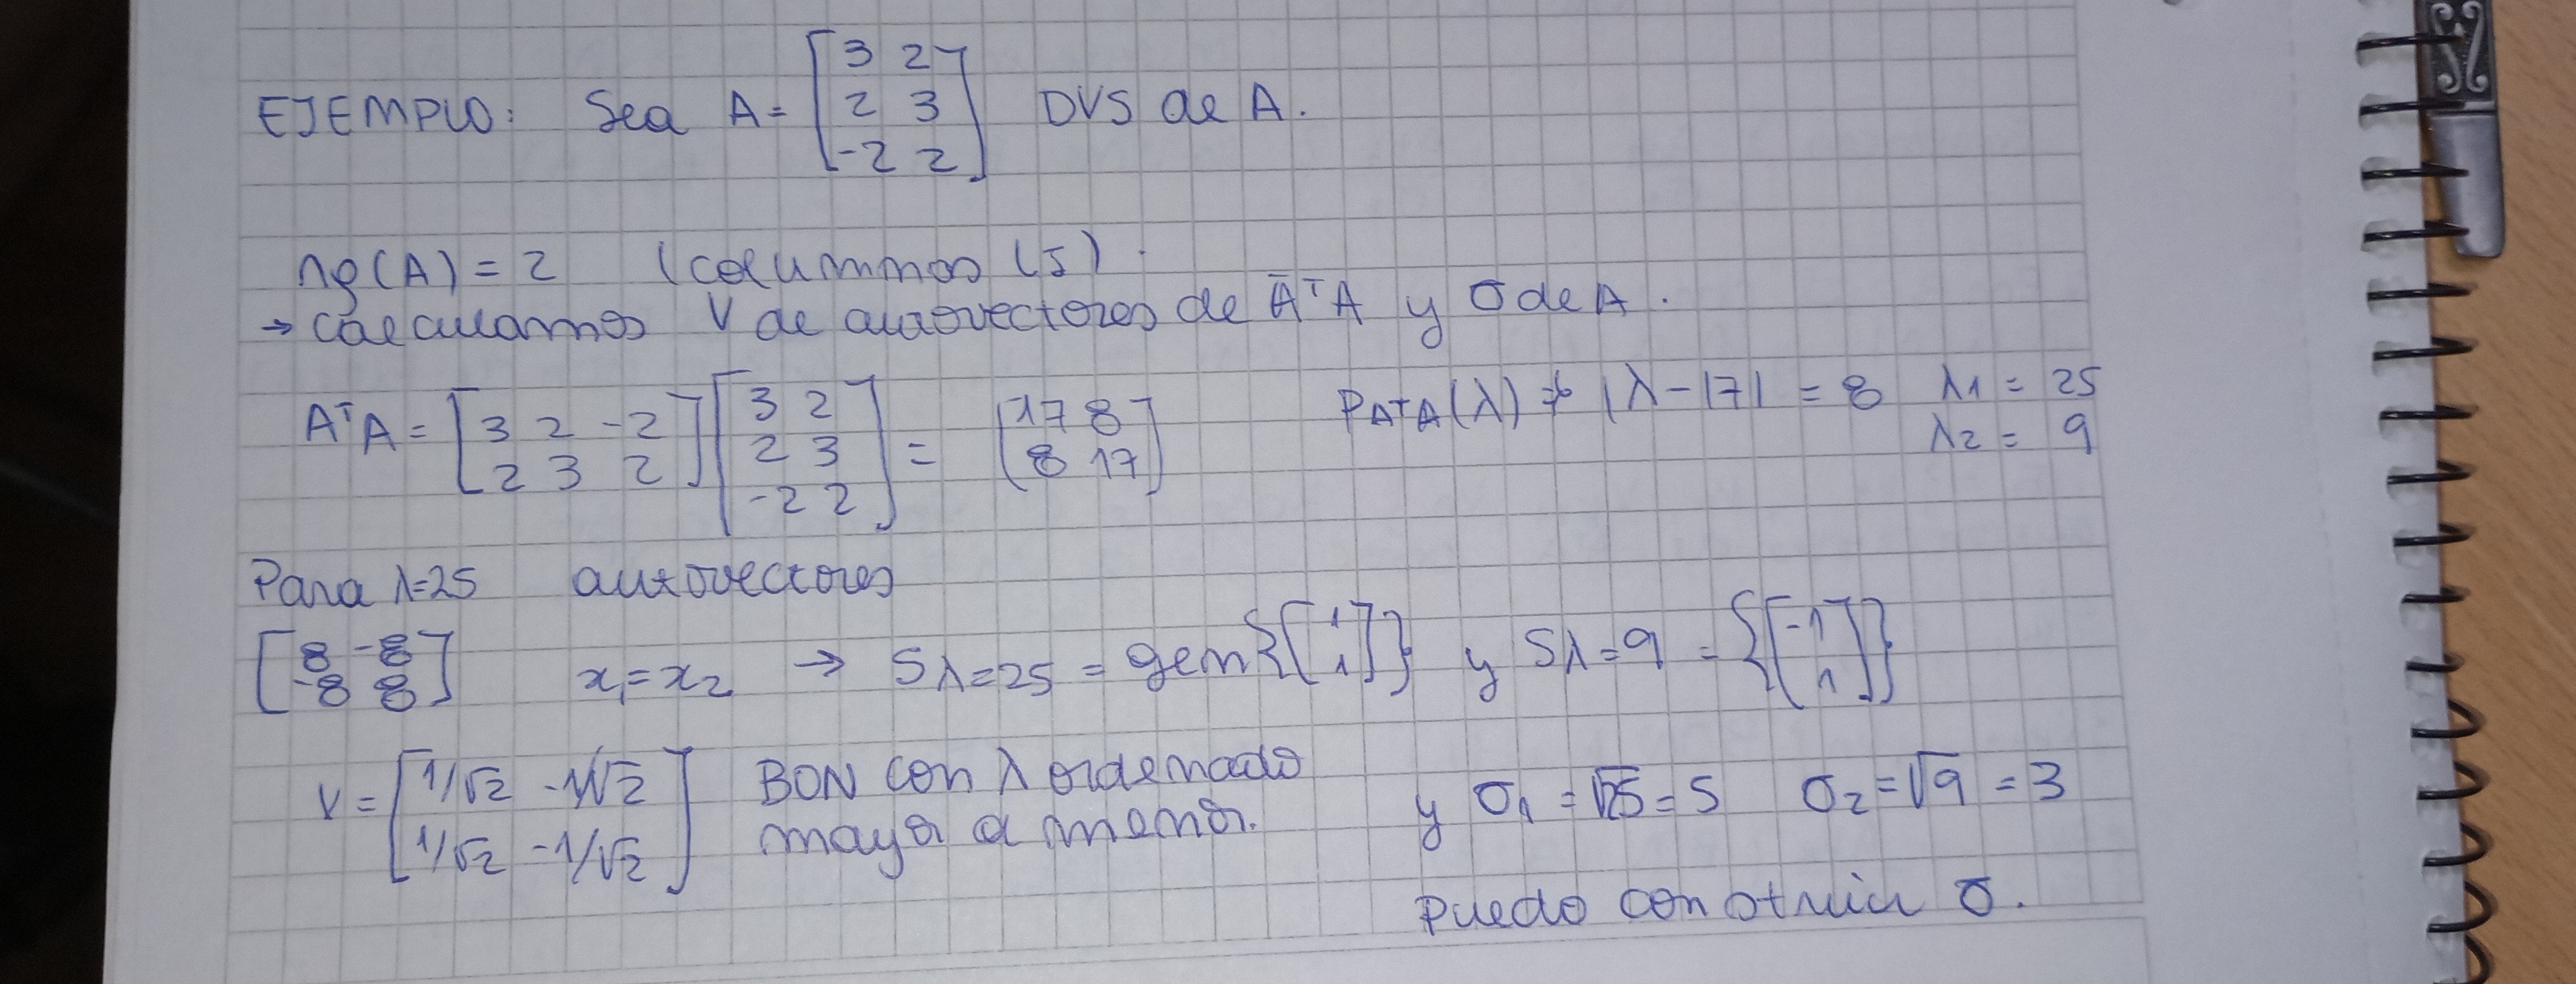 EJEMPLO: Sea A = [3 2; 2 3; -2 2] DVS de A.
rg(A) = 2 (columnas LI).
→ Calculamos V de autovectores de AᵀA y σ de A.
AᵀA = [3 2 -2; 2 3 2] [3 2; 2 3; -2 2] = [17 8; 8 17] P_AᵀA(λ) ≠ |λ-17| = 8 λ1 = 25
λ2 = 9
Para λ=25 autovectores
[8 -8; -8 8] x₁=x₂ → Sλ=25 = gen{[1; 1]} y Sλ=9 = {[-1; 1]}
V = [1/√2 -1/√2; 1/√2 -1/√2] BON con λ ordenado
mayor a menor.
y σ1 = √25 = 5 σ2 = √9 = 3
Puedo construir σ.